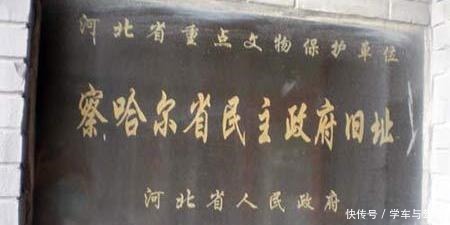 河北省重点文物保护单位
察哈尔省民主政府旧址
河北省人民政府
快传号/学车与